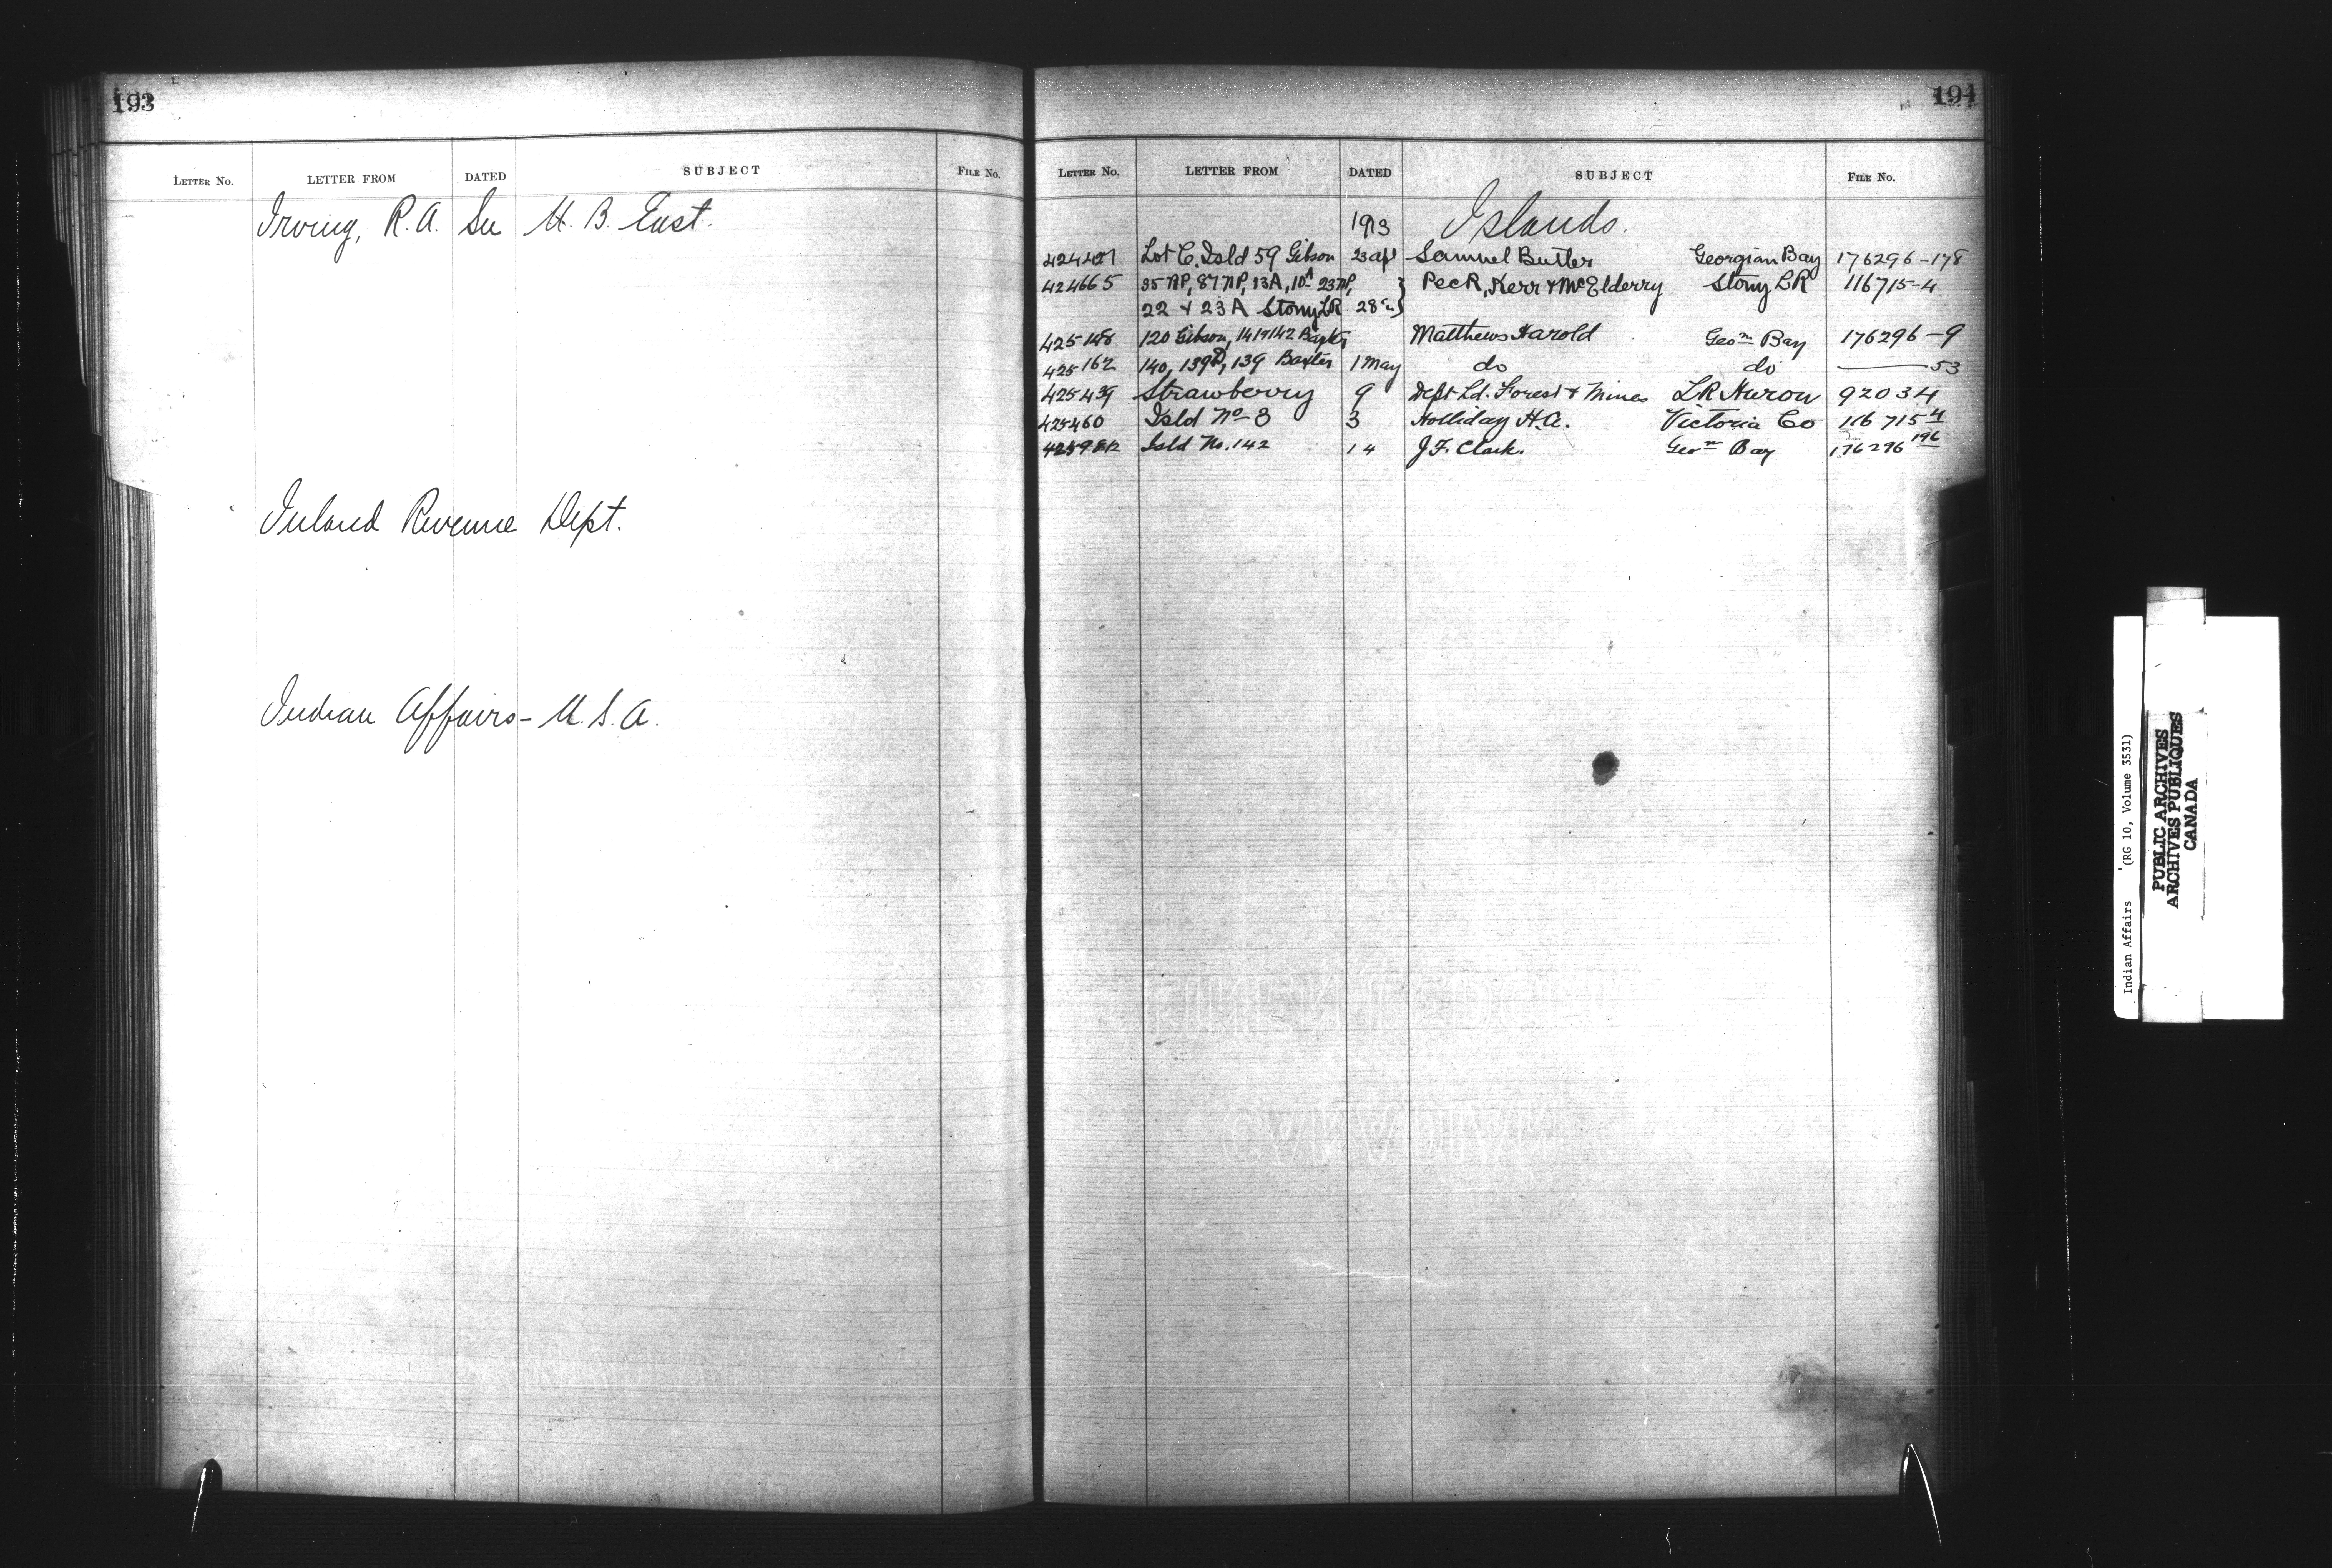 193
LETTER No. LETTER FROM DATED SUBJECT FILE No.
Irving, R. A. See N. B. East.
Inland Revenue Dept.
Indian Affairs - U. S. A.
194
LETTER No. LETTER FROM DATED SUBJECT FILE No.
1913 Islands.
Lot C. Isld 59 Gibson 23 apl Samuel Butler Georgian Bay 176296-178
424665 35 NP, 87 NP, 13A, 10A 23 NP, } Peck, Kerr & McElderry Stony LK 116715-4
22 & 23A Stony LK 28
425148 120 Gibson, 141 142 Baxter Matthews Harold Geon Bay 176296-9
425162 140, 139D, 139 Baxter 1 May do do —— 53
425439 Strawberry 9 Dept Ld. Forest & Mines LK Huron 92034
425460 Isld No 8 3 Holliday H.A. Victoria Co 116715-4
Isld No. 142 14 J. F. Clark. Geon Bay 176296 196
Indian Affairs (RG 10, Volume 3531)
PUBLIC ARCHIVES
ARCHIVES PUBLIQUES
CANADA